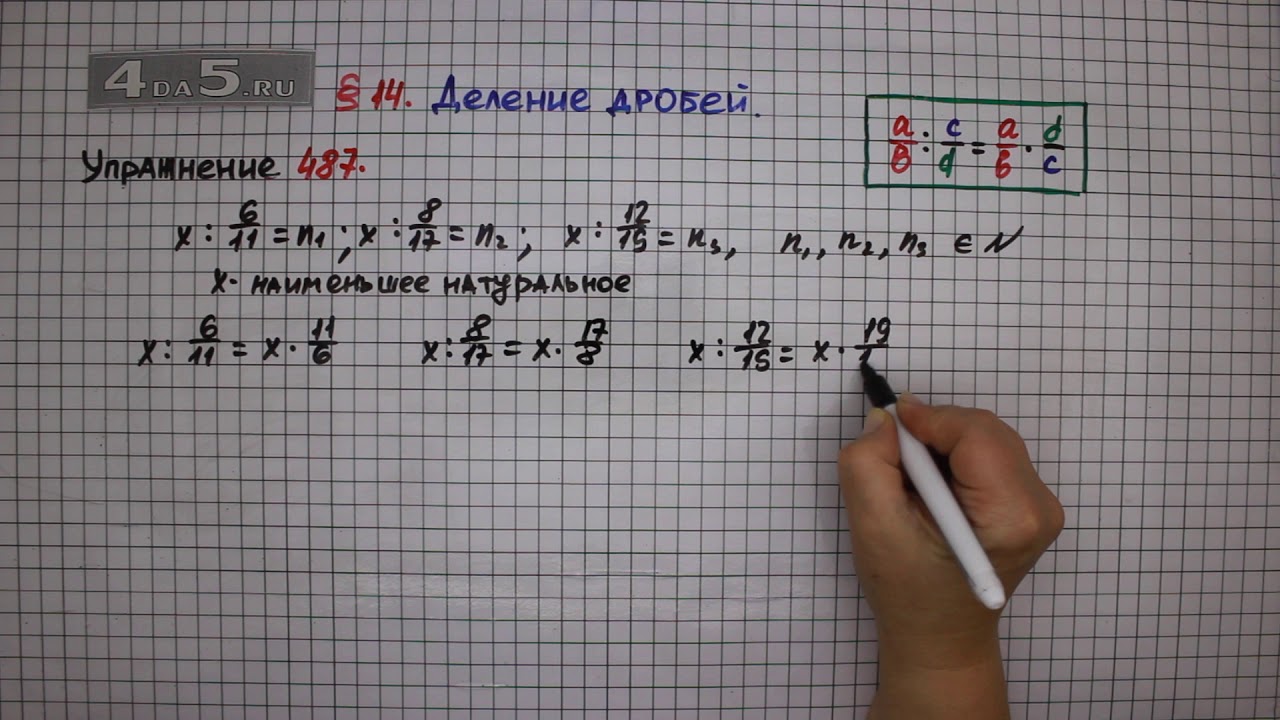 4DA5.RU
§ 14. Деление дробей.
a/b : c/d = a/b · d/c
Упражнение 487.
x : 6/11 = n₁ ; x : 8/17 = n₂ ; x : 12/19 = n₃, n₁, n₂, n₃ ∈ N
x - наименьшее натуральное
x : 6/11 = x · 11/6 x : 8/17 = x · 17/8 x : 12/19 = x · 19/1